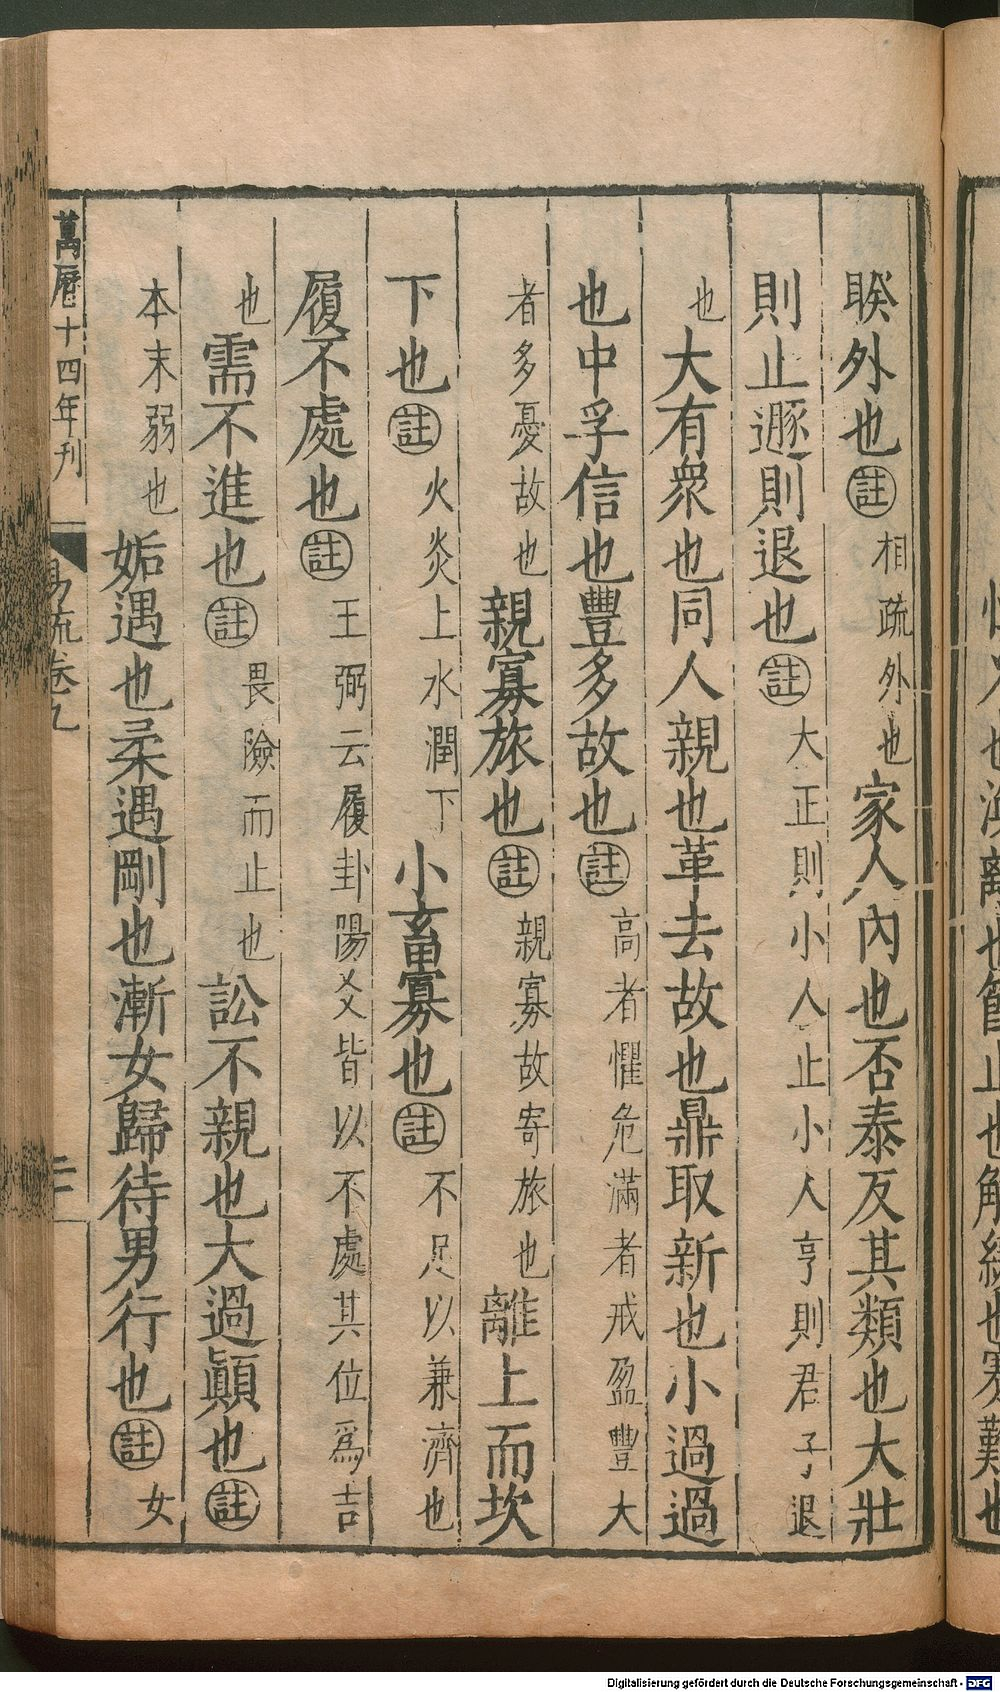 睽外也註相疏外也家人內也否泰反其類也大壯
則止遯則退也註大正則小人止小人亨則君子退
也大有衆也同人親也革去故也鼎取新也小過過
也中孚信也豐多故也註高者懼危滿者戒盈豐大
者多憂故也親寡旅也註親寡故寄旅也離上而坎
下也註火炎上水潤下小畜寡也註不足以兼濟也
履不處也註王弼云履卦陽爻皆以不處其位爲吉
也需不進也註畏險而止也訟不親也大過顚也註
本末弱也姤遇也柔遇剛也漸女歸待男行也註女
萬曆十四年刊 易疏卷九 二十
也渙離也節止也解緩也蹇難也
Digitalisierung gefördert durch die Deutsche Forschungsgemeinschaft - DFG